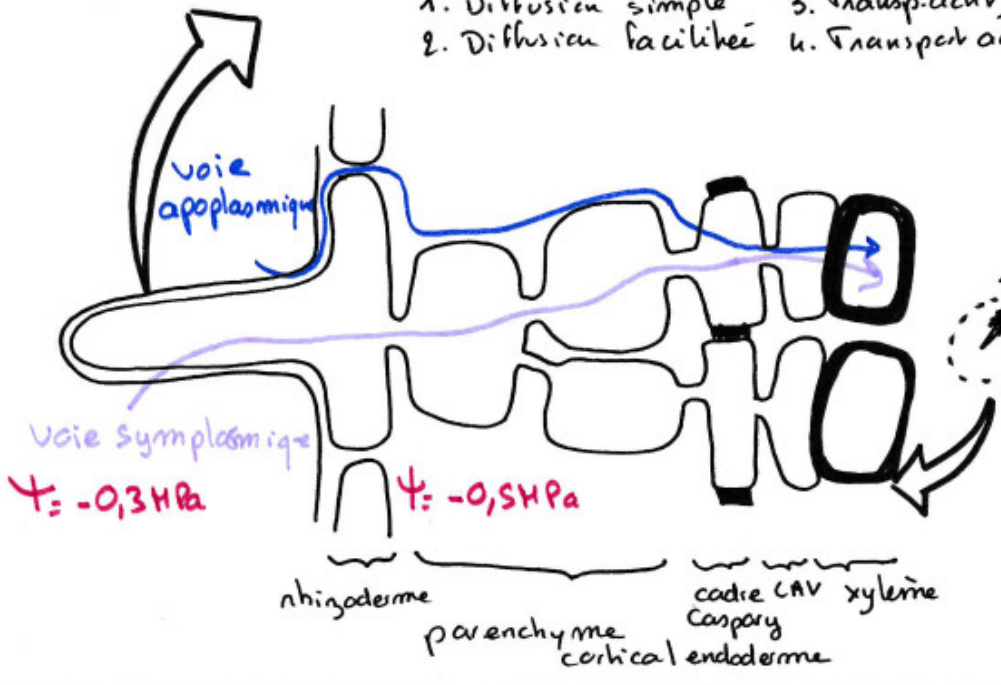 1. Diffusion simple 3.
2. Diffusion facilitée 4. Transport
voie
apoplasmique
voie symplasmique
Ψ= -0,3 MPa Ψ= -0,5 MPa
rhizoderme
parenchyme
cortical
cadre
Caspary
endoderme
CAV
xylème